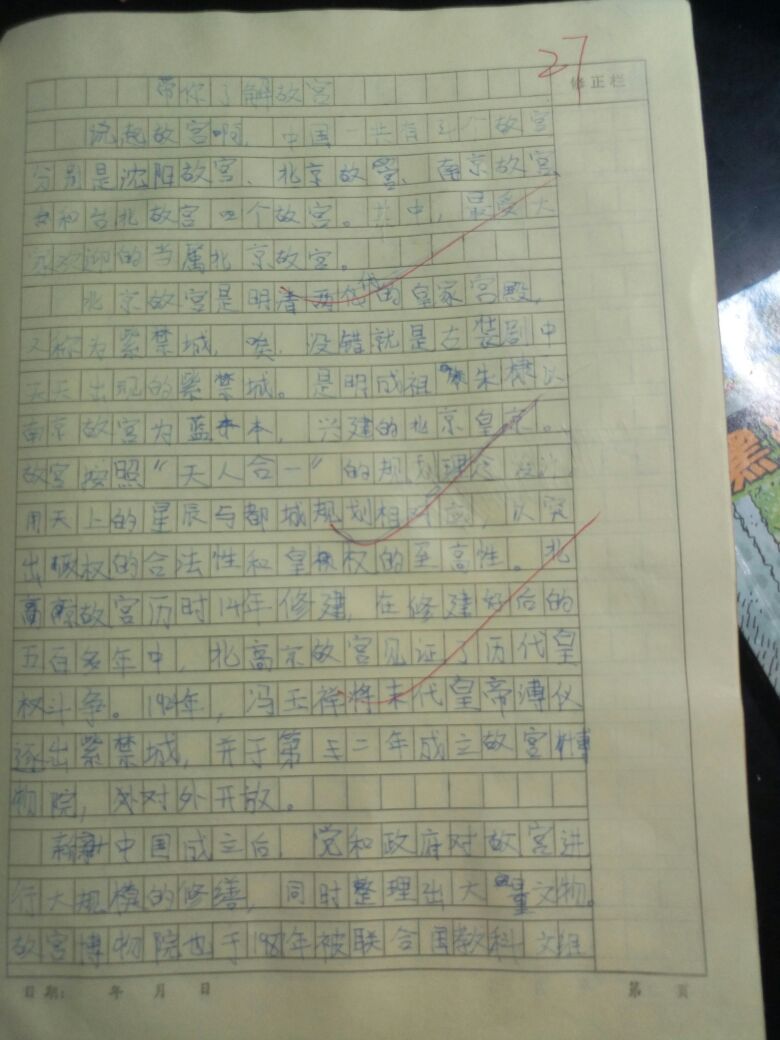 27
修正栏
带你了解故宫
说起故宫啊，中国一共有四个故宫
分别是沈阳故宫、北京故宫、南京故宫
和台北故宫四个故宫。其中，最受大
家欢迎的当属北京故宫。
北京故宫是明清两代的皇家宫殿，
又称为紫禁城，唉，没错就是古装剧中
天天出现的紫禁城。是明成祖朱棣以
南京故宫为蓝本，兴建的北京皇宫。
故宫按照“天人合一”的规划理念设计
用天上的星辰与都城规划相对应，以突
出政权的合法性和皇权的至高性。北
京故宫历时14年修建，在修建好后的
五百多年中，北京故宫见证了历代皇
权斗争。1924年，冯玉祥将末代皇帝溥仪
逐出紫禁城，并于第二年成立故宫博
物院，对外开放。
新中国成立后，党和政府对故宫进
行大规模的修缮，同时整理出大量文物。
故宫博物院也于1987年被联合国教科文组
日期： 年 月 日 第 页